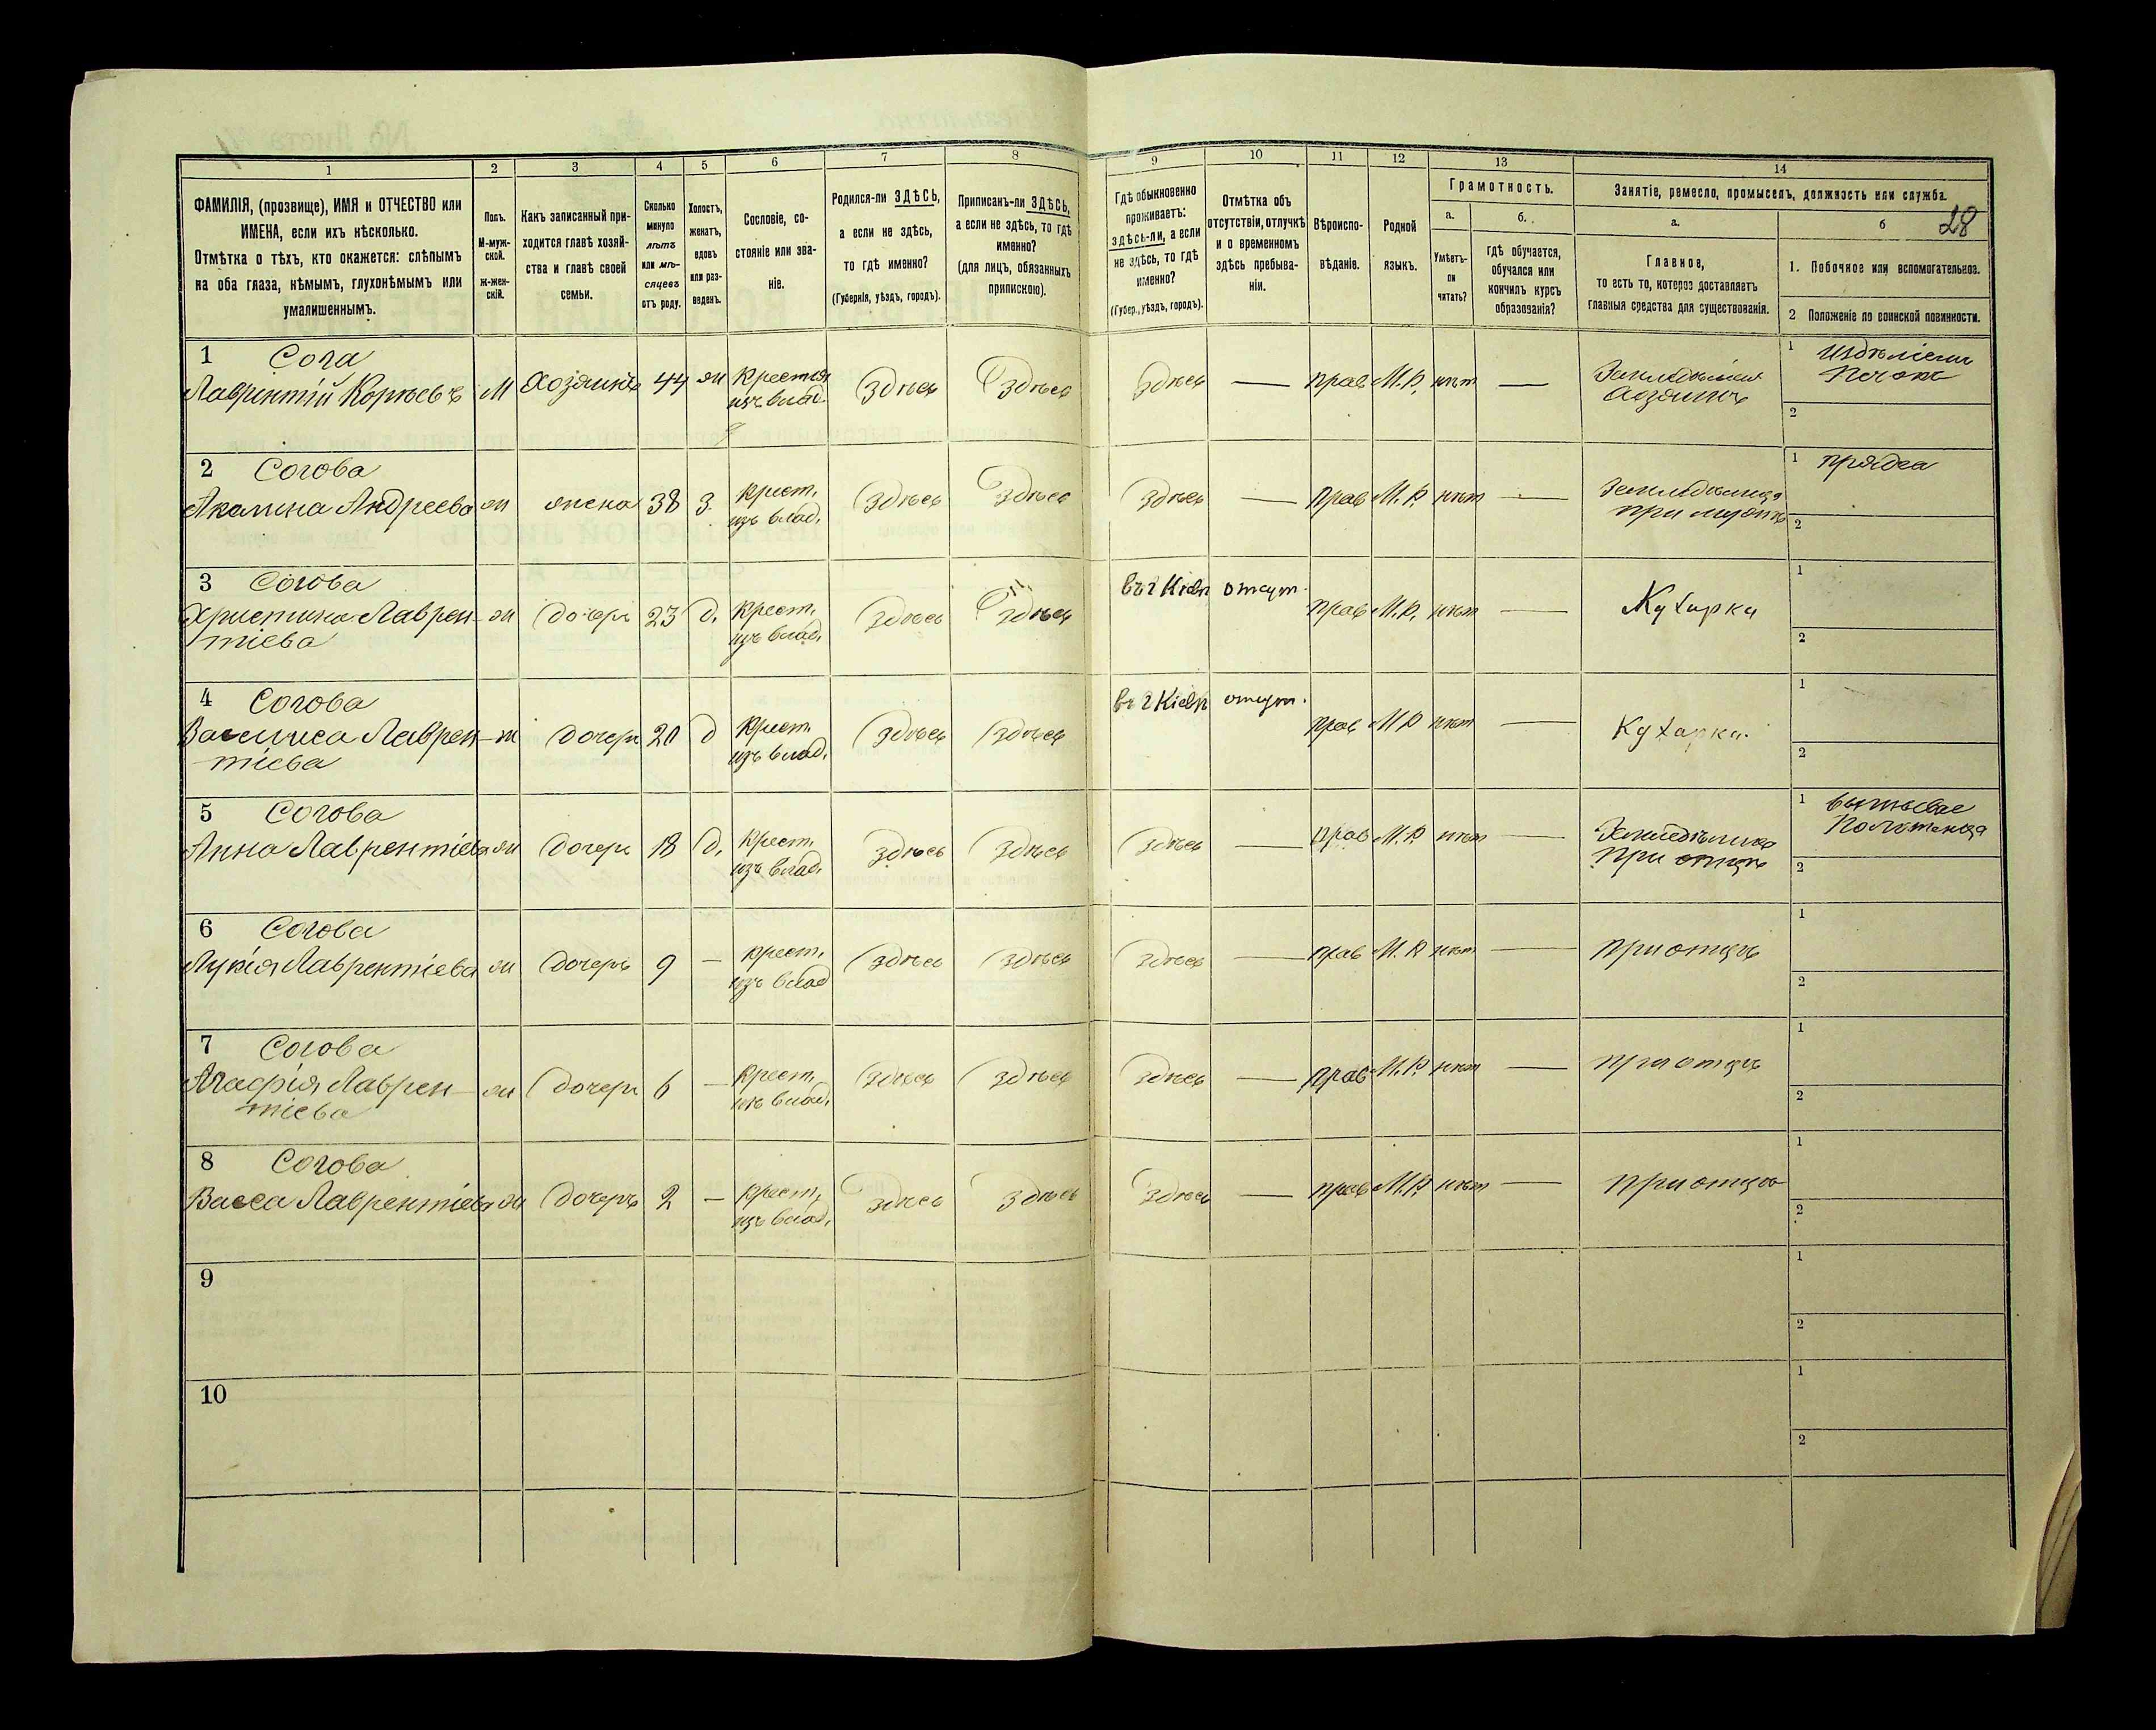 1 2 3 4 5 6 7 8 9 10 11 12 13 14
28
ФАМИЛІЯ, (прозвище), ИМЯ и ОТЧЕСТВО или
ИМЕНА, если ихъ нѣсколько.
Отмѣтка о тѣхъ, кто окажется: слѣпымъ
на оба глаза, нѣмымъ, глухонѣмымъ или
умалишеннымъ.
Полъ.
М-муж-
ской.
ж-жен-
скій.
Какъ записанный при-
ходится главѣ хозяй-
ства и главѣ своей
семьи.
Сколько
минуло
лѣтъ
или мѣ-
сяцевъ
отъ роду.
Холостъ,
женатъ,
вдовъ
или раз-
веденъ.
Сословіе, со-
стояніе или зва-
ніе.
Родился-ли ЗДѢСЬ,
а если не здѣсь,
то гдѣ именно?
(Губернія, уѣздъ, городъ).
Приписанъ-ли ЗДѢСЬ,
а если не здѣсь, то гдѣ
именно?
(для лицъ, обязанныхъ
припискою).
Гдѣ обыкновенно
проживаетъ:
здѣсь-ли, а если
не здѣсь, то гдѣ
именно?
(Губер., уѣздъ, городъ).
Отмѣтка объ
отсутствіи, отлучкѣ
и о временномъ
здѣсь пребыва-
ніи.
Вѣроиспо-
вѣданіе.
Родной
языкъ.
Грамотность.
а.
Умѣетъ-
ли
читать?
б.
гдѣ обучается,
обучался или
кончилъ курсъ
образованія?
Занятіе, ремесло, промыселъ, должность или служба.
а.
Главное,
то есть то, которое доставляетъ
главныя средства для существованія.
б
1. Побочное или вспомогательное.
2 Положеніе по воинской повинности.
1 Сога
Лаврентій Корнѣевъ М Хозяинъ 44 ж Крестья изъ влад. Здѣсь Здѣсь Здѣсь — прав М.Р. нѣтъ — Хозяинъ
1
2
2 Согова
Акилина Андреева ж жена 38 з. крест. изъ влад. Здѣсь Здѣсь Здѣсь — прав М.Р. нѣтъ — при мужѣ
1 пряха
2
3 Согова
Христина Лаврен-
тіева ж дочерь 23 д. крест. изъ влад. Здѣсь Здѣсь въ г Кіевѣ отсут. прав М.Р. нѣтъ — Кухарка
1
2
4 Согова
Василиса Лаврен-
тіева ж дочерь 20 д крест. изъ влад. Здѣсь Здѣсь въ г Кіевѣ отсут. прав М.Р нѣтъ — Кухарка
1
2
5 Согова
Анна Лаврентіева ж дочерь 18 д. крест. изъ влад. Здѣсь Здѣсь Здѣсь — прав М.Р нѣтъ — при отцѣ
1
2
6 Согова
Лукія Лаврентіева ж дочерь 9 — крест. изъ влад Здѣсь Здѣсь Здѣсь — прав М.Р нѣтъ — при отцѣ
1
2
7 Согова
Агафія Лаврен-
тіева ж дочерь 6 — крест. изъ влад. Здѣсь Здѣсь Здѣсь — прав М.Р. нѣтъ — при отцѣ
1
2
8 Согова
Васса Лаврентіева ж дочерь 2 — крест. изъ влад. Здѣсь Здѣсь Здѣсь — прав М.Р. нѣтъ — при отцѣ
1
2
9
1
2
10
1
2